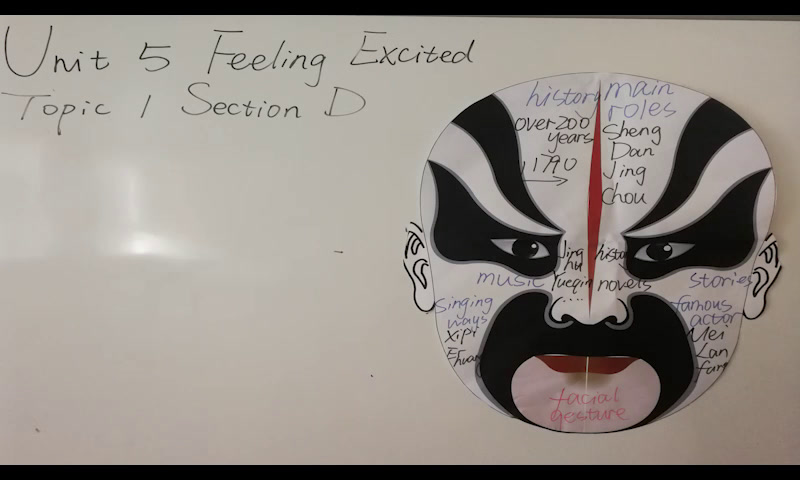 Unit 5 Feeling Excited
Topic 1 Section D
history
over 200
years
1790
main
roles
Sheng
Dan
Jing
Chou
music
Jing
hu
Yueqin
....
novels
stories
Singing
ways
Xipi
famous
actor
Mei
Lan
fang
facial
gesture